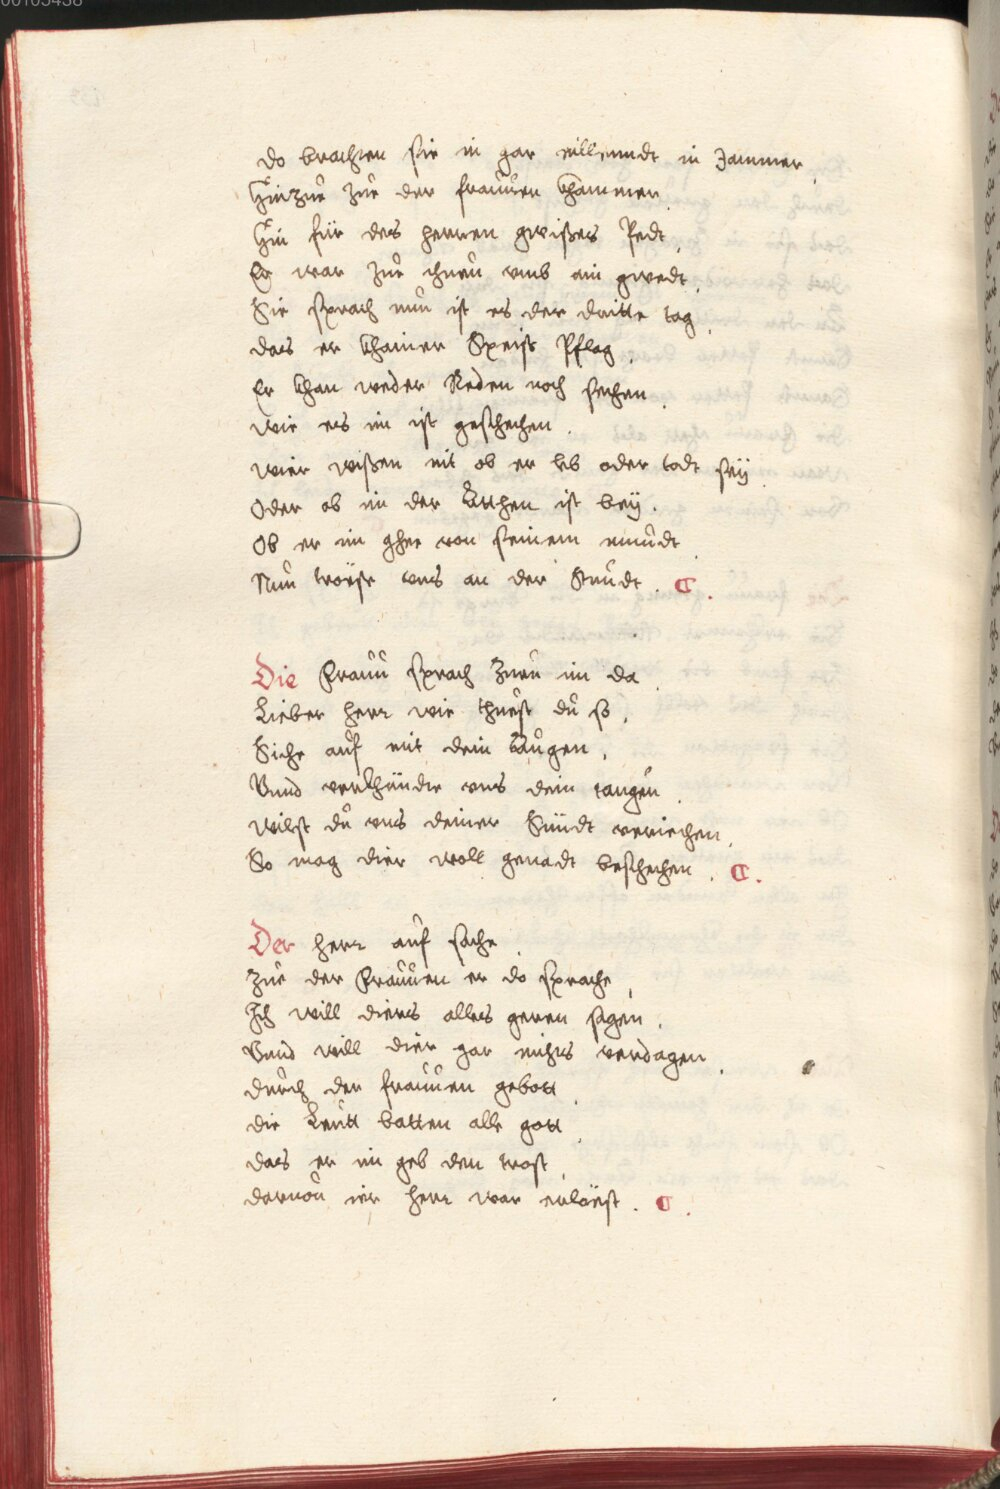 do brachten sie in gar eillenndt in Jammer.
Hinzue zue der frauuen khammer.
Hin für des herren gwißes Pedt.
Er war zue ihnen vmb ain gwedt.
Sie sprach nun ist es der dritte tag.
das er khainer Speiß Pflag.
Er khan weder Reden noch sechen.
wie es im ist geschechen.
wier wißen nit ob er leb oder todt seÿ.
Oder ob im der Atthen ist beÿ.
Ob er im ghee von seinem mundt.
Nun troest vns an der Stundt. C.
Die Frauu sprach zuen im da.
Lieber herr wie thuest du so.
Siche auf mit dein Augen.
Vnnd verkhündte vns dein taugen.
wilst du vns deiner Sündt veriechen.
So mag dier woll genadt beschechen. C.
Der herr auf sache.
Zue der Frauuen er do sprache.
Ich will diers alles geren sagen.
Vnnd will dier gar nichts verdagen.
durch der frauuen gebott.
die Leutt batten alle gott.
das er im geb den trost.
daruon ier herr war erlöest. C.